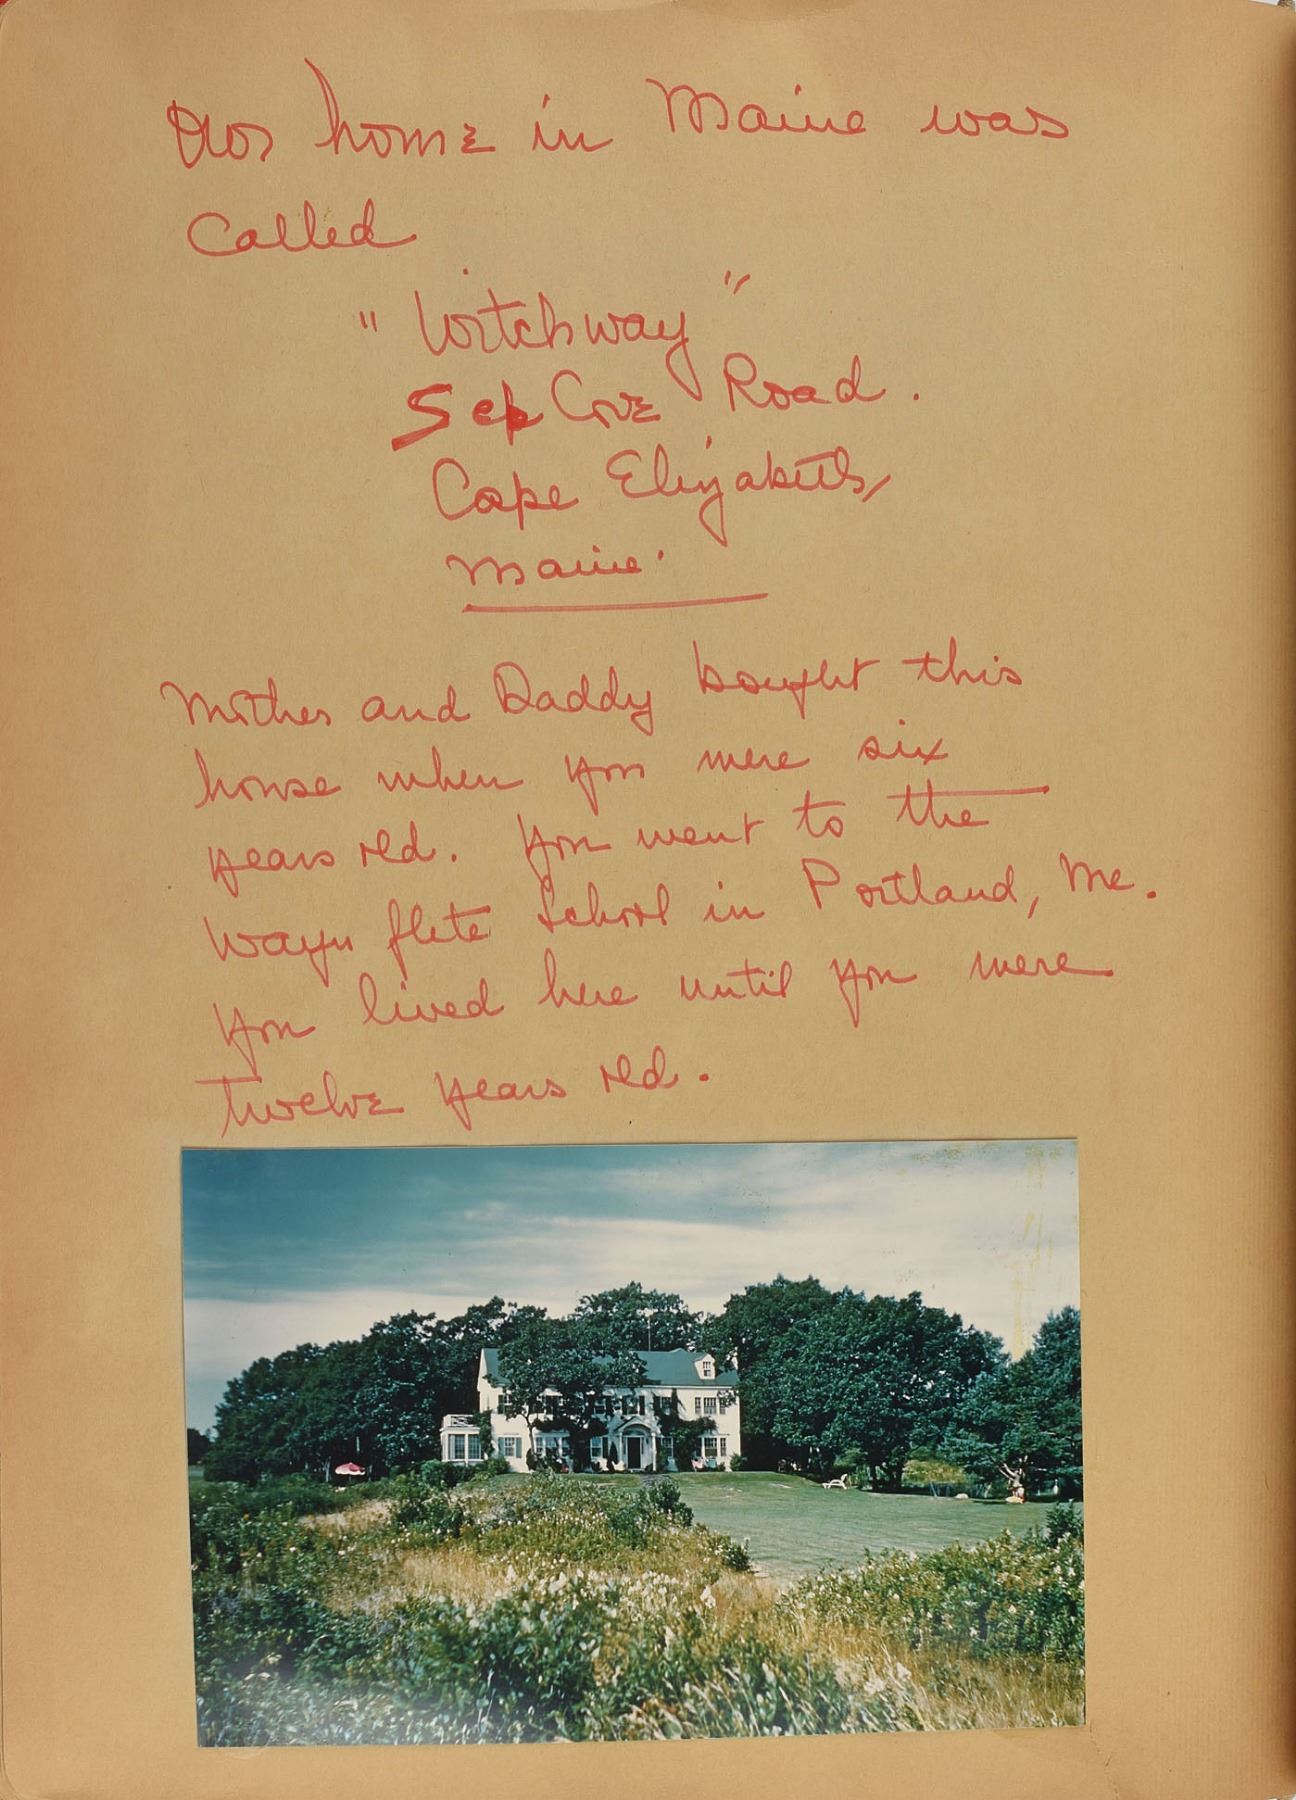 Our home in Maine was
Called
"Witchway"
Seal Cove Road.
Cape Elizabeth,
Maine.
Mother and Daddy bought this
house when you were six
years old. You went to the
Waynflete School in Portland, Me.
You lived here until you were
twelve years old.